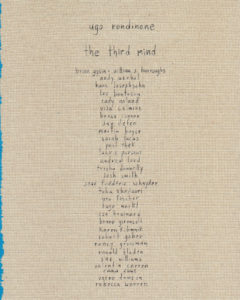 ugo rondinone
the third mind
brion gysin + william s. burroughs
andy warhol
hans josephsohn
lee bontecou
cady noland
vija celmins
bruce conner
jay defeo
martin boyce
sarah lucas
paul thek
laurie parsons
andrew lord
trisha donnelly
josh smith
jean frédéric schnyder
toba khedoori
urs fischer
hugo markl
joe brainard
karen kilimnik
robert gober
nancy grossman
ronald bladen
sue williams
valentin carron
emma kunz
verne dawson
rebecca warren